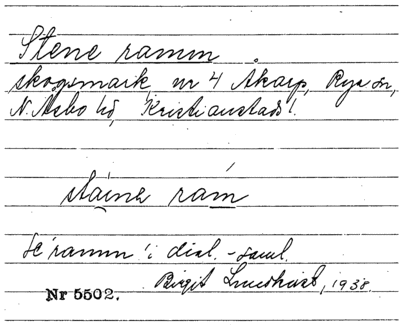 Stene ramm
skogsmark, nr 4 Åkarp, Rya sn,
N. Åsbo hd, Kristianstads l.
staine ram
Se ramm i dial.-saml.
Birgit Lundkvist, 1938.
Nr 5502.